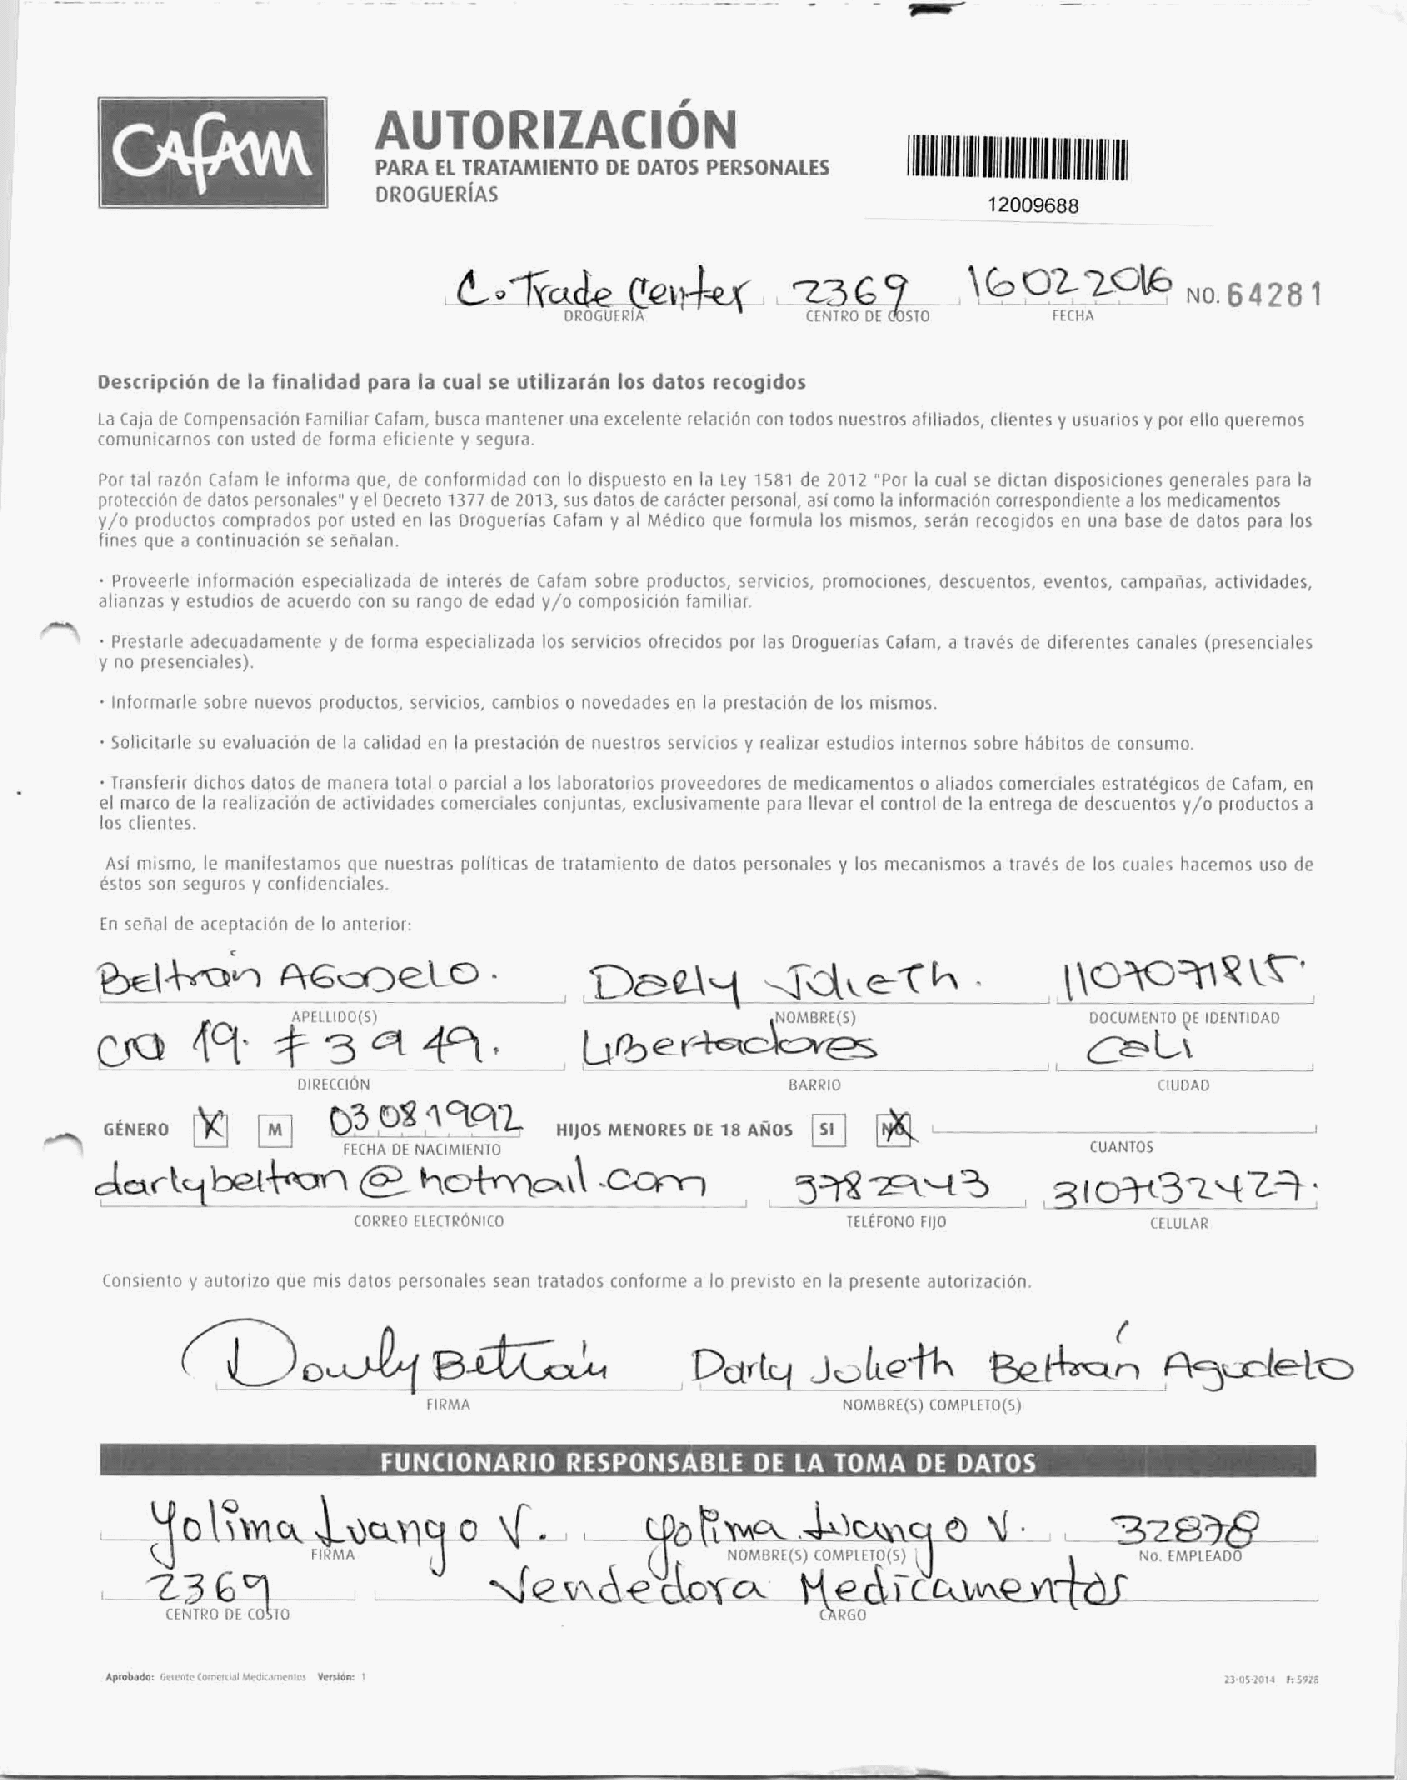 CAFAM
AUTORIZACIÓN
PARA EL TRATAMIENTO DE DATOS PERSONALES
DROGUERÍAS
12009688
C. Trade Center 2369 16022016 NO. 64281
DROGUERÍA CENTRO DE COSTO FECHA
Descripción de la finalidad para la cual se utilizarán los datos recogidos
La Caja de Compensación Familiar Cafam, busca mantener una excelente relación con todos nuestros afiliados, clientes y usuarios y por ello queremos
comunicarnos con usted de forma eficiente y segura.
Por tal razón Cafam le informa que, de conformidad con lo dispuesto en la Ley 1581 de 2012 "Por la cual se dictan disposiciones generales para la
protección de datos personales" y el Decreto 1377 de 2013, sus datos de carácter personal, así como la información correspondiente a los medicamentos
y/o productos comprados por usted en las Droguerías Cafam y al Médico que formula los mismos, serán recogidos en una base de datos para los
fines que a continuación se señalan.
· Proveerle información especializada de interés de Cafam sobre productos, servicios, promociones, descuentos, eventos, campañas, actividades,
alianzas y estudios de acuerdo con su rango de edad y/o composición familiar.
· Prestarle adecuadamente y de forma especializada los servicios ofrecidos por las Droguerías Cafam, a través de diferentes canales (presenciales
y no presenciales).
· Informarle sobre nuevos productos, servicios, cambios o novedades en la prestación de los mismos.
· Solicitarle su evaluación de la calidad en la prestación de nuestros servicios y realizar estudios internos sobre hábitos de consumo.
· Transferir dichos datos de manera total o parcial a los laboratorios proveedores de medicamentos o aliados comerciales estratégicos de Cafam, en
el marco de la realización de actividades comerciales conjuntas, exclusivamente para llevar el control de la entrega de descuentos y/o productos a
los clientes.
Así mismo, le manifestamos que nuestras políticas de tratamiento de datos personales y los mecanismos a través de los cuales hacemos uso de
éstos son seguros y confidenciales.
En señal de aceptación de lo anterior:
Beltrán AGuDelo. Darly Julieth. 1107071815.
APELLIDO(S) NOMBRE(S) DOCUMENTO DE IDENTIDAD
cra 19. # 39 49. Libertadores Cali
DIRECCIÓN BARRIO CIUDAD
GÉNERO X M 03081992 HIJOS MENORES DE 18 AÑOS SI NO
FECHA DE NACIMIENTO CUANTOS
darlybeltran@hotmail.com 3782943 3107132427.
CORREO ELECTRÓNICO TELÉFONO FIJO CELULAR
Consiento y autorizo que mis datos personales sean tratados conforme a lo previsto en la presente autorización.
Darly Beltrán Darly Julieth Beltrán Agudelo
FIRMA NOMBRE(S) COMPLETO(S)
FUNCIONARIO RESPONSABLE DE LA TOMA DE DATOS
Yolima Luango V. Yolima Luango V. 32878
FIRMA NOMBRE(S) COMPLETO(S) No. EMPLEADO
2369 Vendedora Medicamentos
CENTRO DE COSTO CARGO
Aprobado: Gerente Comercial Medicamentos Versión: 1 23-05-2014 F: 5928